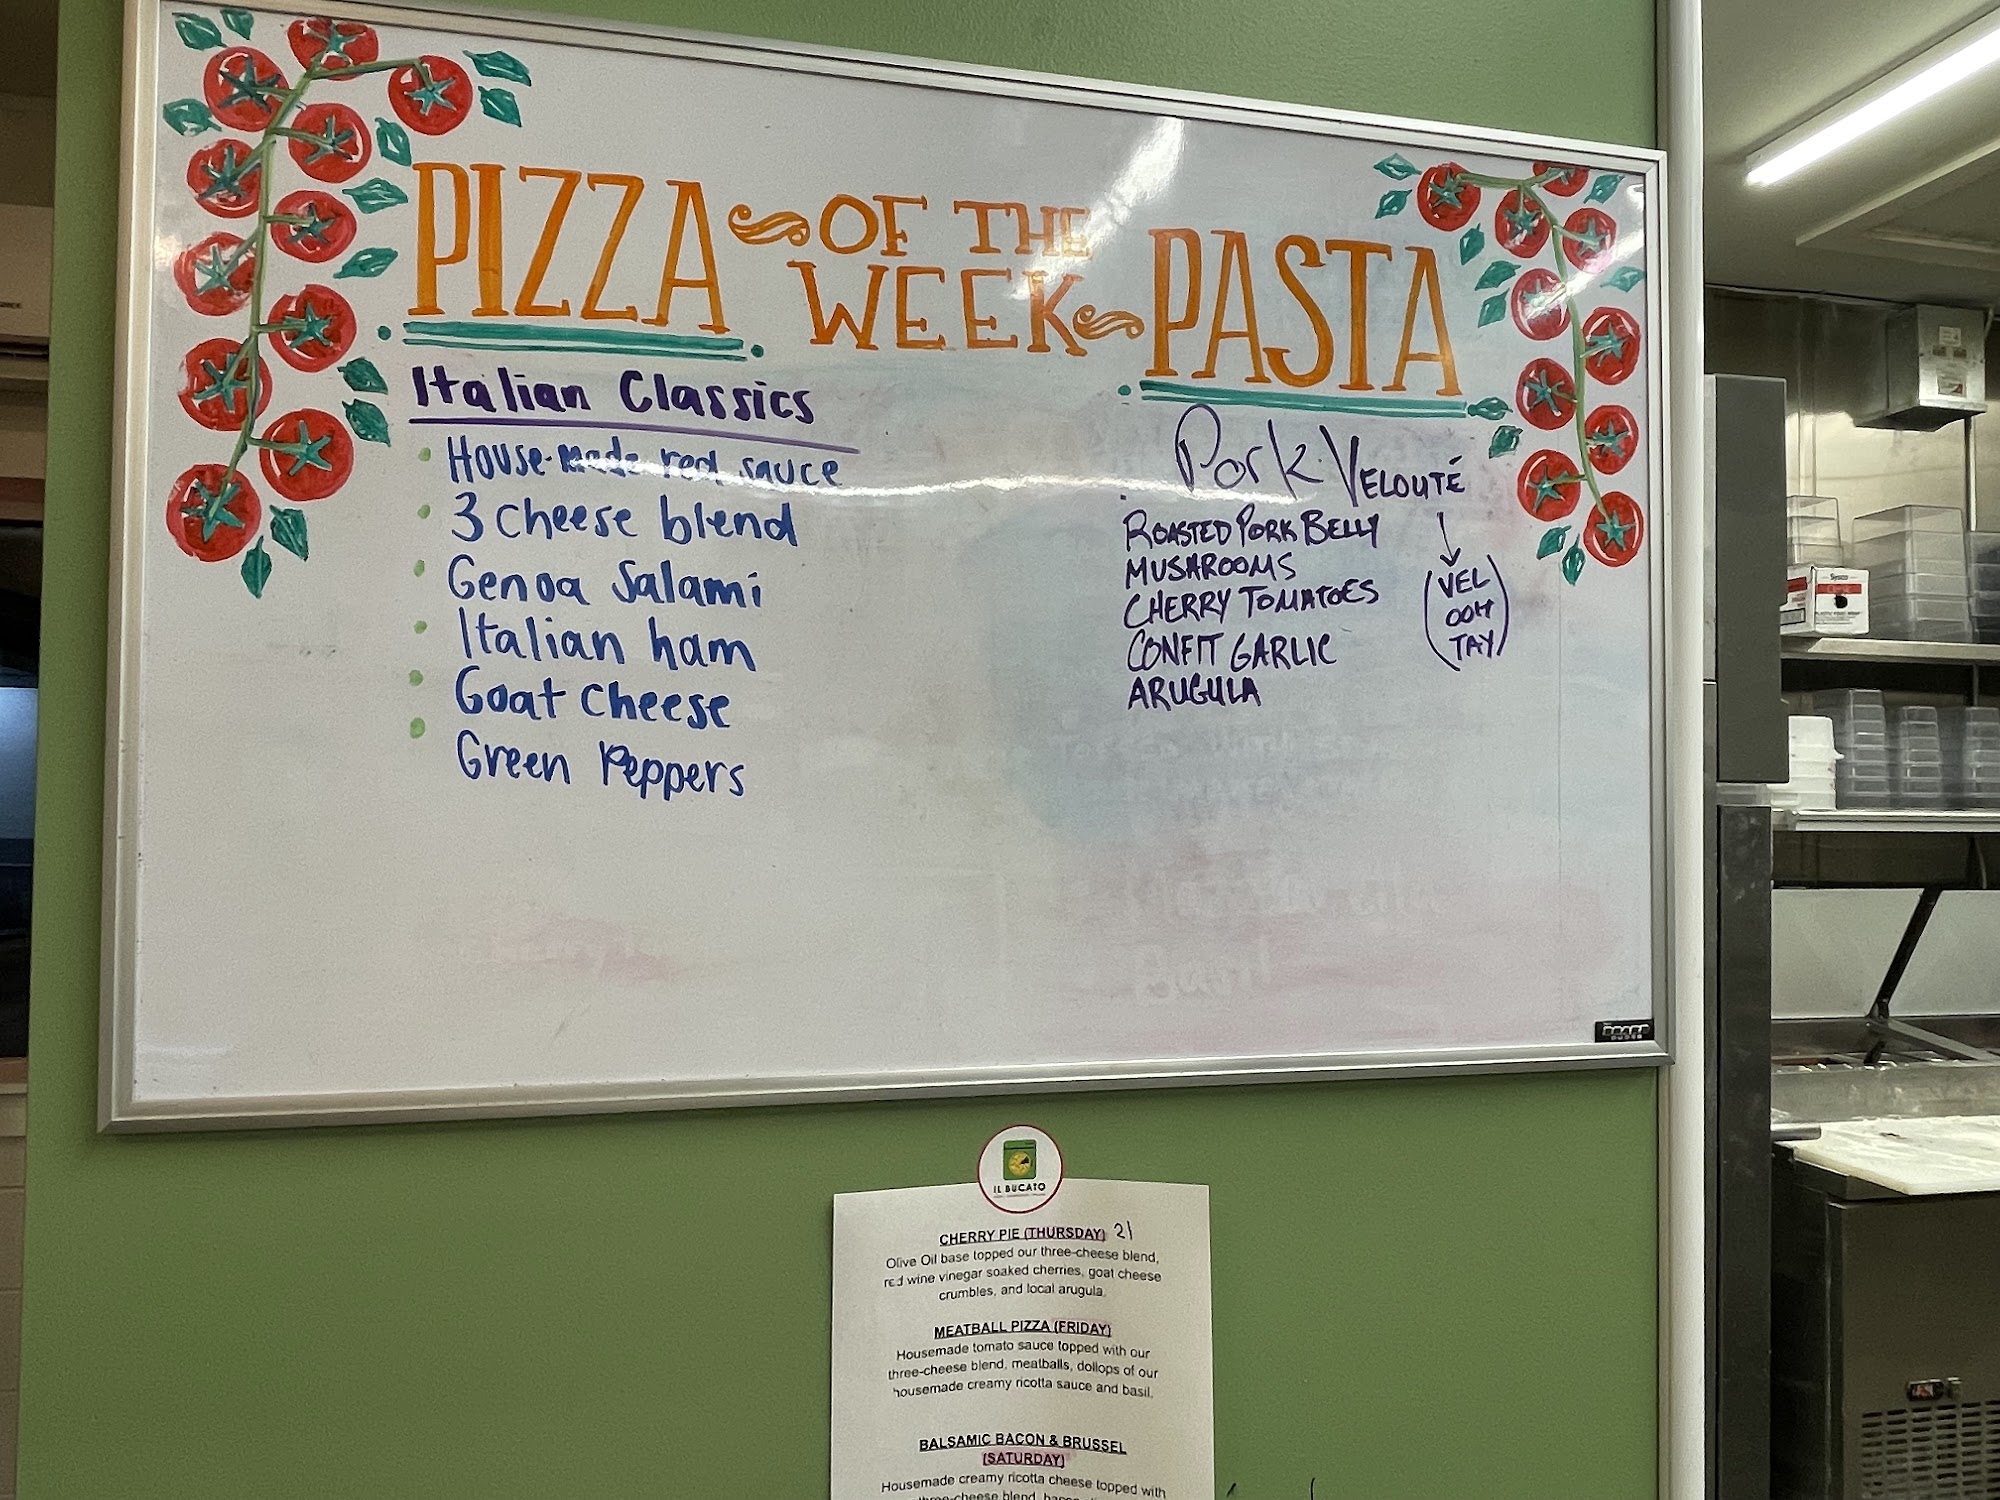 PIZZA OF THE WEEK PASTA
Italian Classics
House-made red sauce
3 cheese blend
Genoa Salami
Italian ham
Goat cheese
Green Peppers
Pork Velouté
(VEL
OOH
TAY)
ROASTED PORK BELLY
MUSHROOMS
CHERRY TOMATOES
CONFIT GARLIC
ARUGULA
IL BUCATO
CHERRY PIE (THURSDAY) 21
Olive Oil base topped our three-cheese blend,
red wine vinegar soaked cherries, goat cheese
crumbles, and local arugula.
MEATBALL PIZZA (FRIDAY)
Housemade tomato sauce topped with our
three-cheese blend, meatballs, dollops of our
housemade creamy ricotta sauce and basil.
BALSAMIC BACON & BRUSSEL
(SATURDAY)
Housemade creamy ricotta cheese topped with
three-cheese blend,